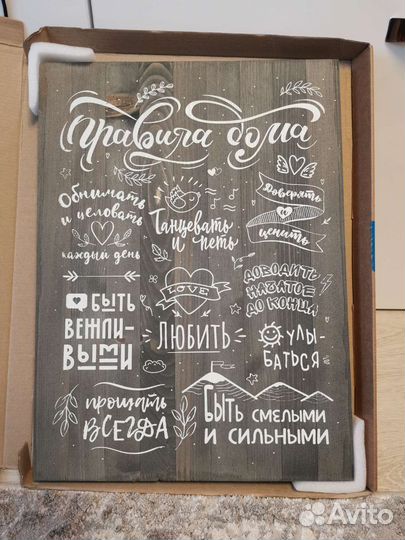 Правила дома
Обнимать
и целовать
каждый день
Танцевать
и петь
Доверять
и
ценить
LOVE
ЛЮБИТЬ
ДОВОДИТЬ
НАЧАТОЕ
ДО КОНЦА
БЫТЬ
ВЕЖЛИ-
ВЫМИ
УЛЫ-
БАТЬСЯ
прощать
ВСЕГДА
БЫТЬ СМЕЛЫМИ
И СИЛЬНЫМИ
Avito